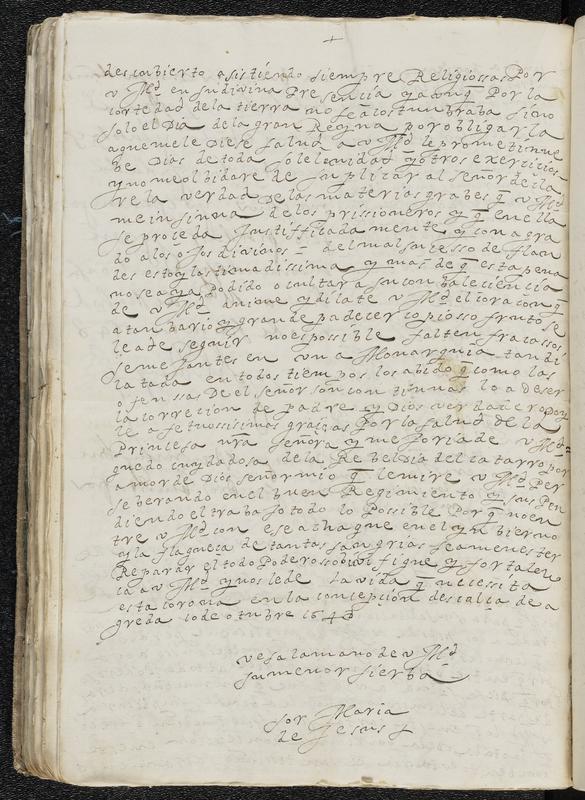 +
descubierto asistiendo siempre Religiossas Por
v Md en su divina Presencia y aunq̄ Por la
cortedad de la tierra no se acostumbraba sino
solo el Dia de la gran Reyna por obligarla
a que me le Diese salud a v Md le prometi nue
be Dias de toda solelenidad y otros exercicios
y no me olbidare de suplicar al señor descu
bre la verdad de las materias grabes q̄ v Md
me insinua de los prissioneros y q̄ en ella
se proceda Justifficadamente y con agra
do a los ojos divinos – del mal sucesso de flan
des estoy lastimadissima y mas de q̄ esta pena
no se aya podido ocultar a su conbaleciencia
de v Md anime y dilate v Md el coraçon q̄
a tan bario y grande padecer copiosso fruto se
le a de seguir no es possible falten fracassos
semejantes en una Monarquia tan di
latada en todos tiempos los abido y como las
ofenssas De el señor son continuas lo a de ser
la correcion de padre y Dios verdadero doy
le afetuossimas gracias Por la salud de la
Princesa nra señora y mejoria de v Md
quedo cuydadosa de la ReBelDia del catarro por
amor de Dios señor mio q̄ le mire v Md Per
seberando en el buen Regimiento y suspen
diendo el trabajo todo lo Possible Por q̄ no en
tre v Md con ese achaque en el ynbierno
y la flaqueça de tantas sangrias se a menester
Reparar el todo Poderosso bivifique y fortalez
ca a v Md y nos le de la vida q̄ necessita
esta corona en la concepçion descalça de a
greda 10 de otubre 1648
vesa la mano de v Md
su menor sierba
sor Maria
de Jesus